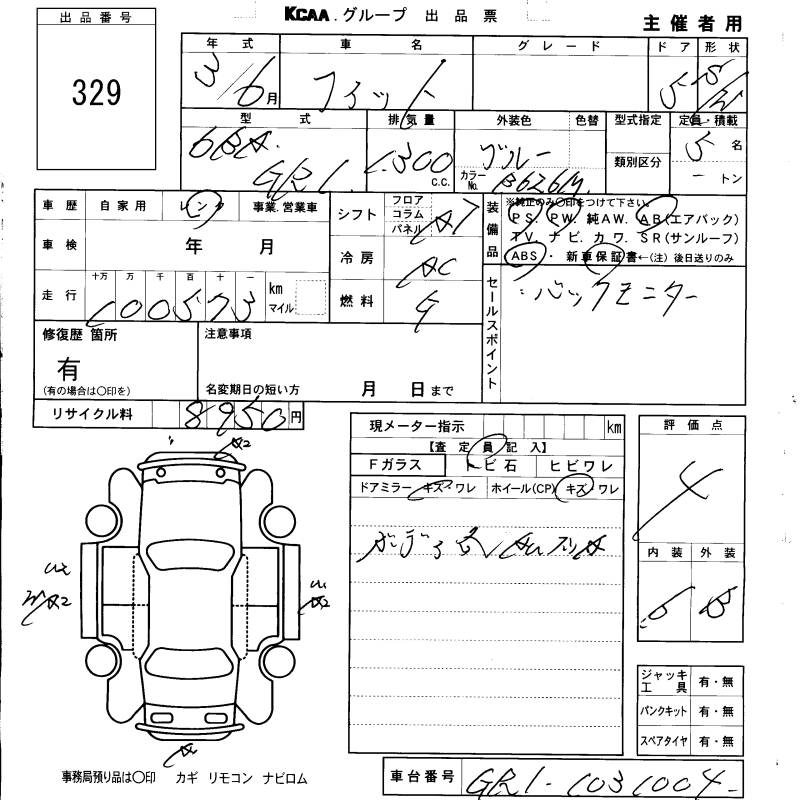 KCAA.グループ 出品票
主催者用
出品番号
329
年式 車名 グレード ドア 形状
3/6月 フィット 5 S/W
型式 排気量 外装色 色替 型式指定 定員・積載
6BA. GR1 1,300c.c. ブルー カラーNo. B626M 類別区分 5名
ートン
車歴 自家用 レンタ 事業.営業車
シフト フロア コラム パネル AT
装備品 ※純正のみ○印をつけて下さい。
PS. PW. 純AW. AB(エアバック)
TV. ナビ. カワ. SR(サンルーフ)
ABS・新車保証書←(注)後日送りのみ
車検 年 月
冷房 AC
走行 十万 万 千 百 十 一 km マイル
100573
燃料 G
セールスポイント
バックモニター
修復歴 箇所
有
(有の場合は○印を)
注意事項
名変期日の短い方 月 日まで
リサイクル料 8950円
現メーター指示 km
【査定員記入】
Fガラス トビ石 ヒビワレ
ドアミラー キズ・ワレ ホイール(CP) キズ・ワレ
評価点
4
内装 外装
B
A2
A2
A2
A
ジャッキ工具 有・無
パンクキット 有・無
スペアタイヤ 有・無
事務局預り品は○印 カギ リモコン ナビロム
車台番号 GR1-1031004